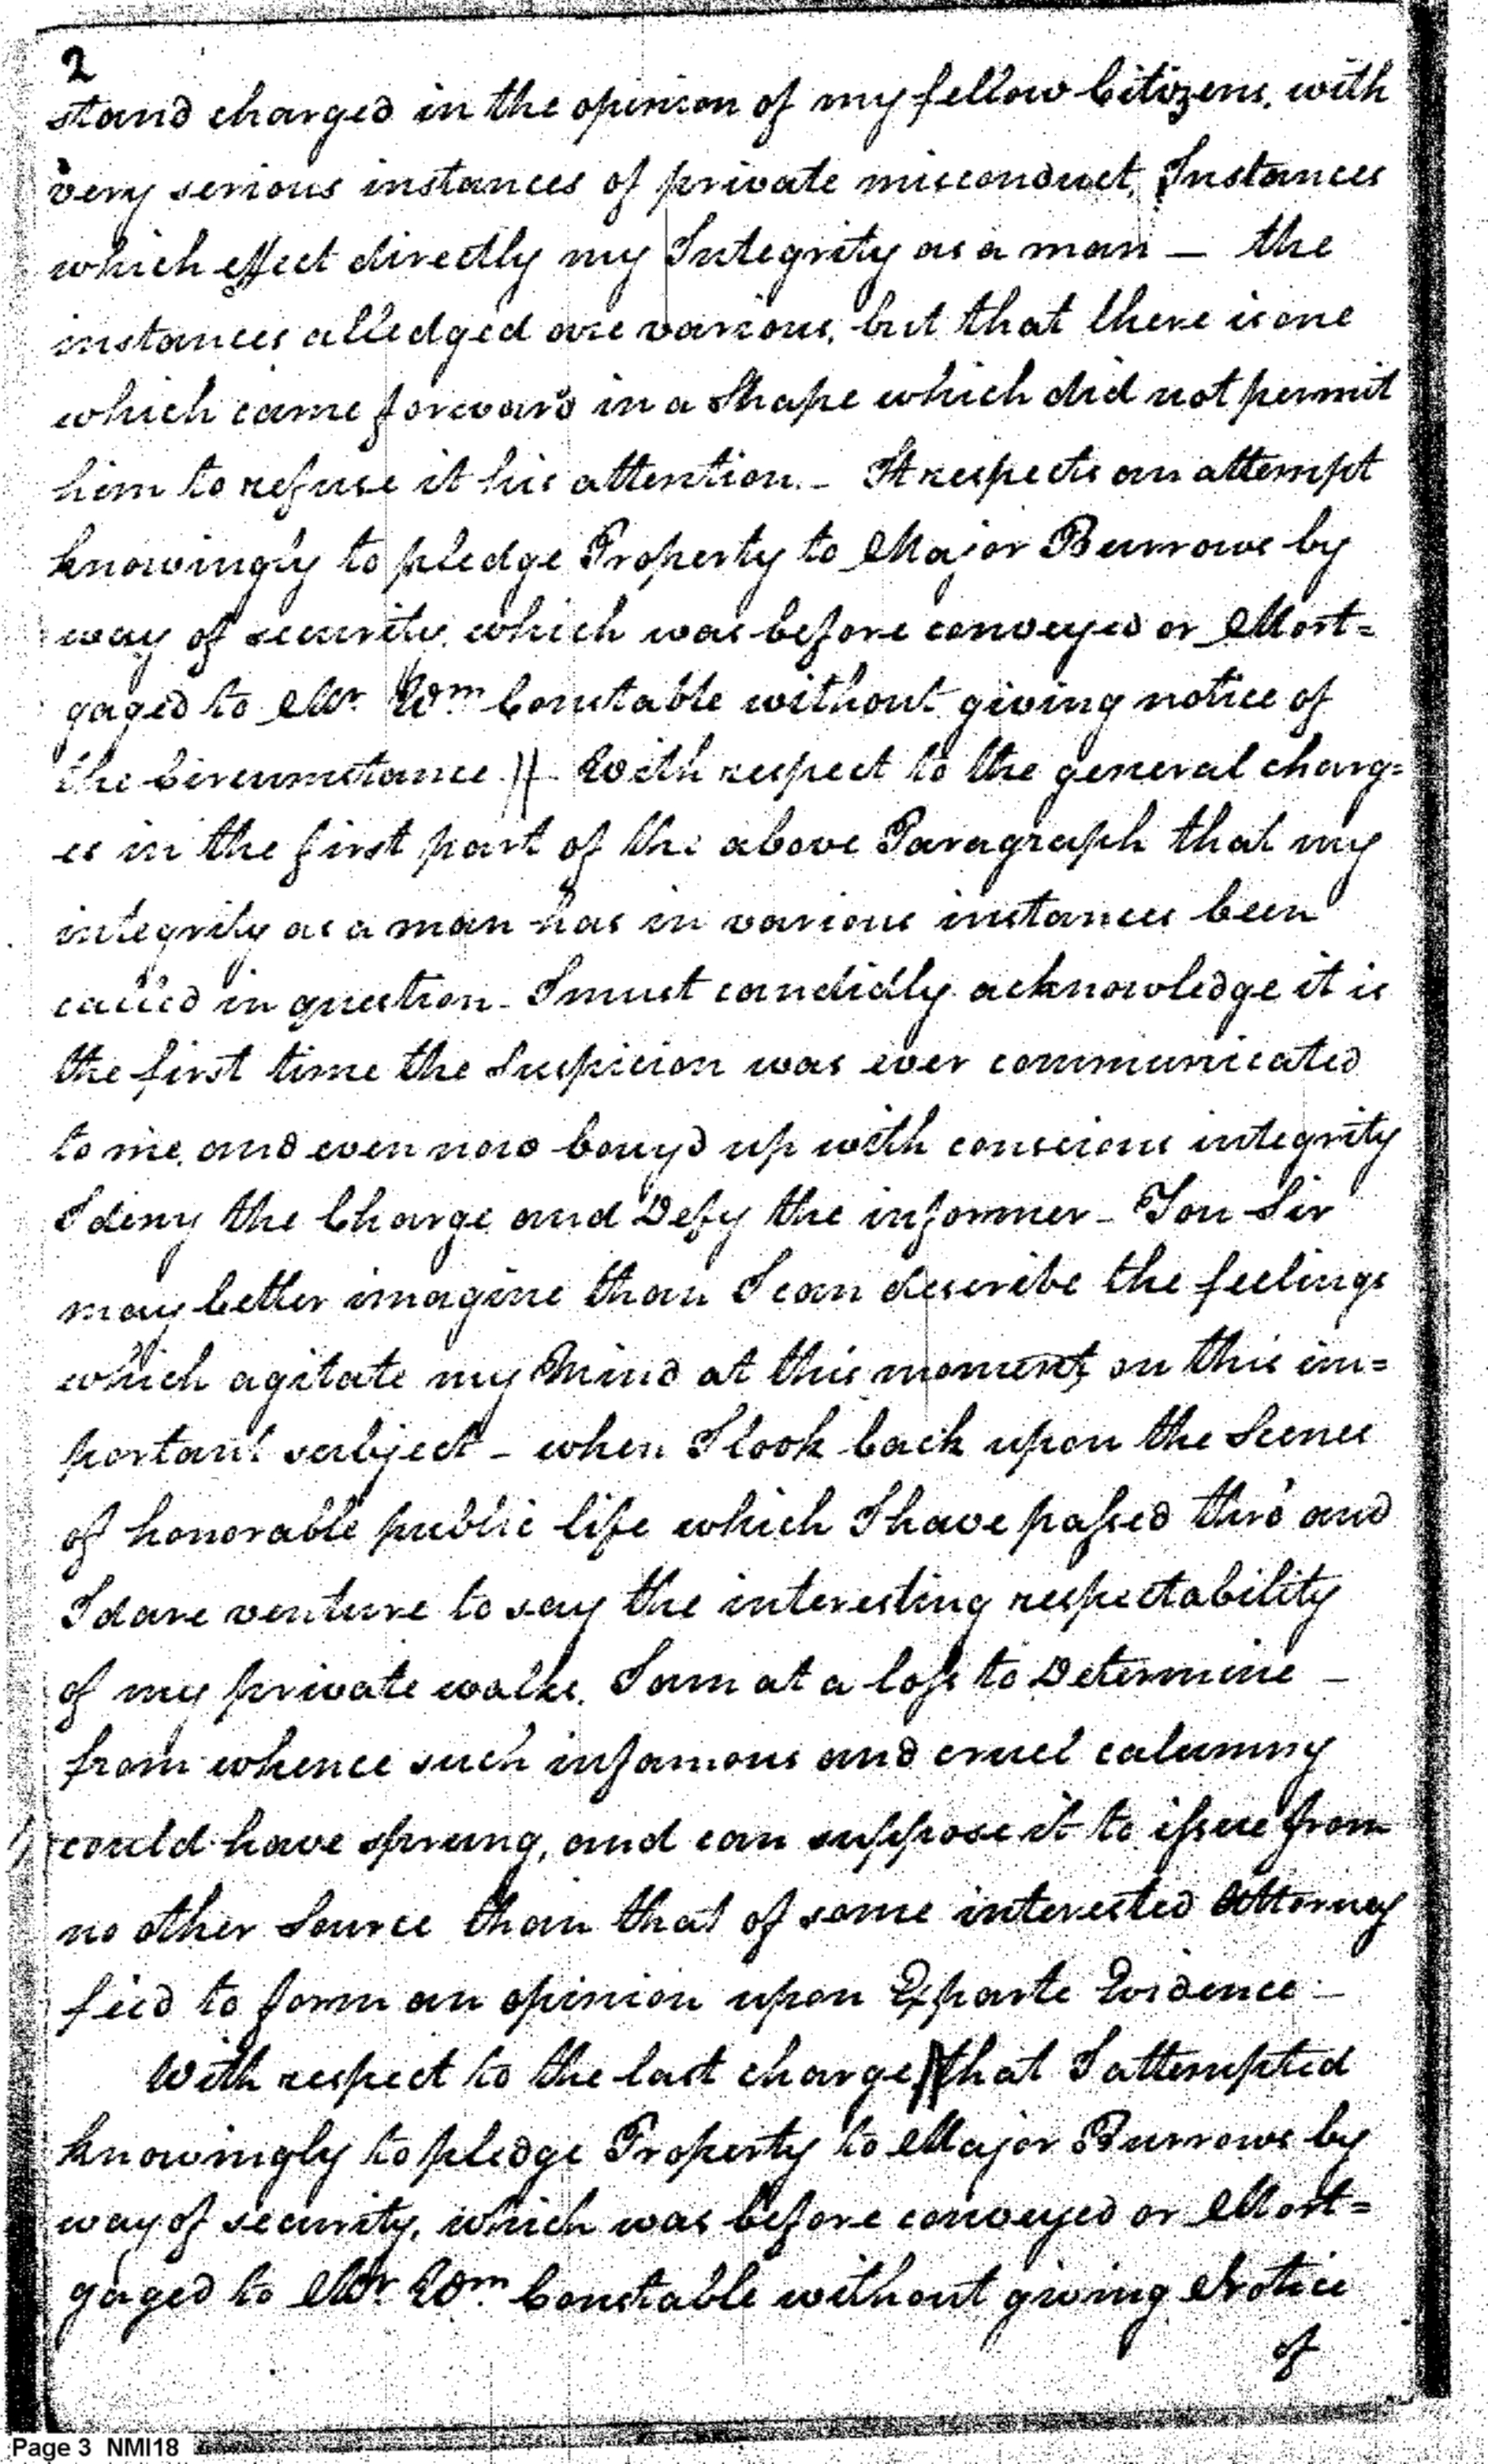 2
stand charged in the opinion of my fellow Citizens, with
very serious instances of private misconduct, Instances
which effect directly my Integrity as a man — the
instances alledged are various, but that there is one
which came forward in a Shape which did not permit
him to refuse it his attention. - It respects an attempt
knowingly to pledge Property to Major Burrows by
way of security, which was before conveyed or Mort=
gaged to Mr. Wm Constable without giving notice of
the Circumstance // - With respect to the general charg=
es in the first part of the above Paragraph that my
integrity as a man has in various instances been
called in question - I must candidly acknowledge it is
the first time the Suspicion was ever communicated
to me, and even now bouy'd up with conscious integrity
I deny the Charge and Defy the informer - You Sir
may better imagine than I can describe the feelings
which agitate my Mind at this moment, on this im=
portant subject - when I look back upon the Scenes
of honorable public life which I have passed thro' and
I dare venture to say the interesting respectability
of my private walks, I am at a loss to Determine -
from whence such infamous and cruel calumny
could have sprung, and can suppose it to issue from
no other Source than that of some interested Attorney
fee'd to form an opinion upon Exparte Evidence -
With respect to the last charge // that I attempted
knowingly to pledge Property to Major Burrows by
way of security, which was before conveyed or Mort=
gaged to Mr. Wm. Constable without giving Notice
of
Page 3 NMI18